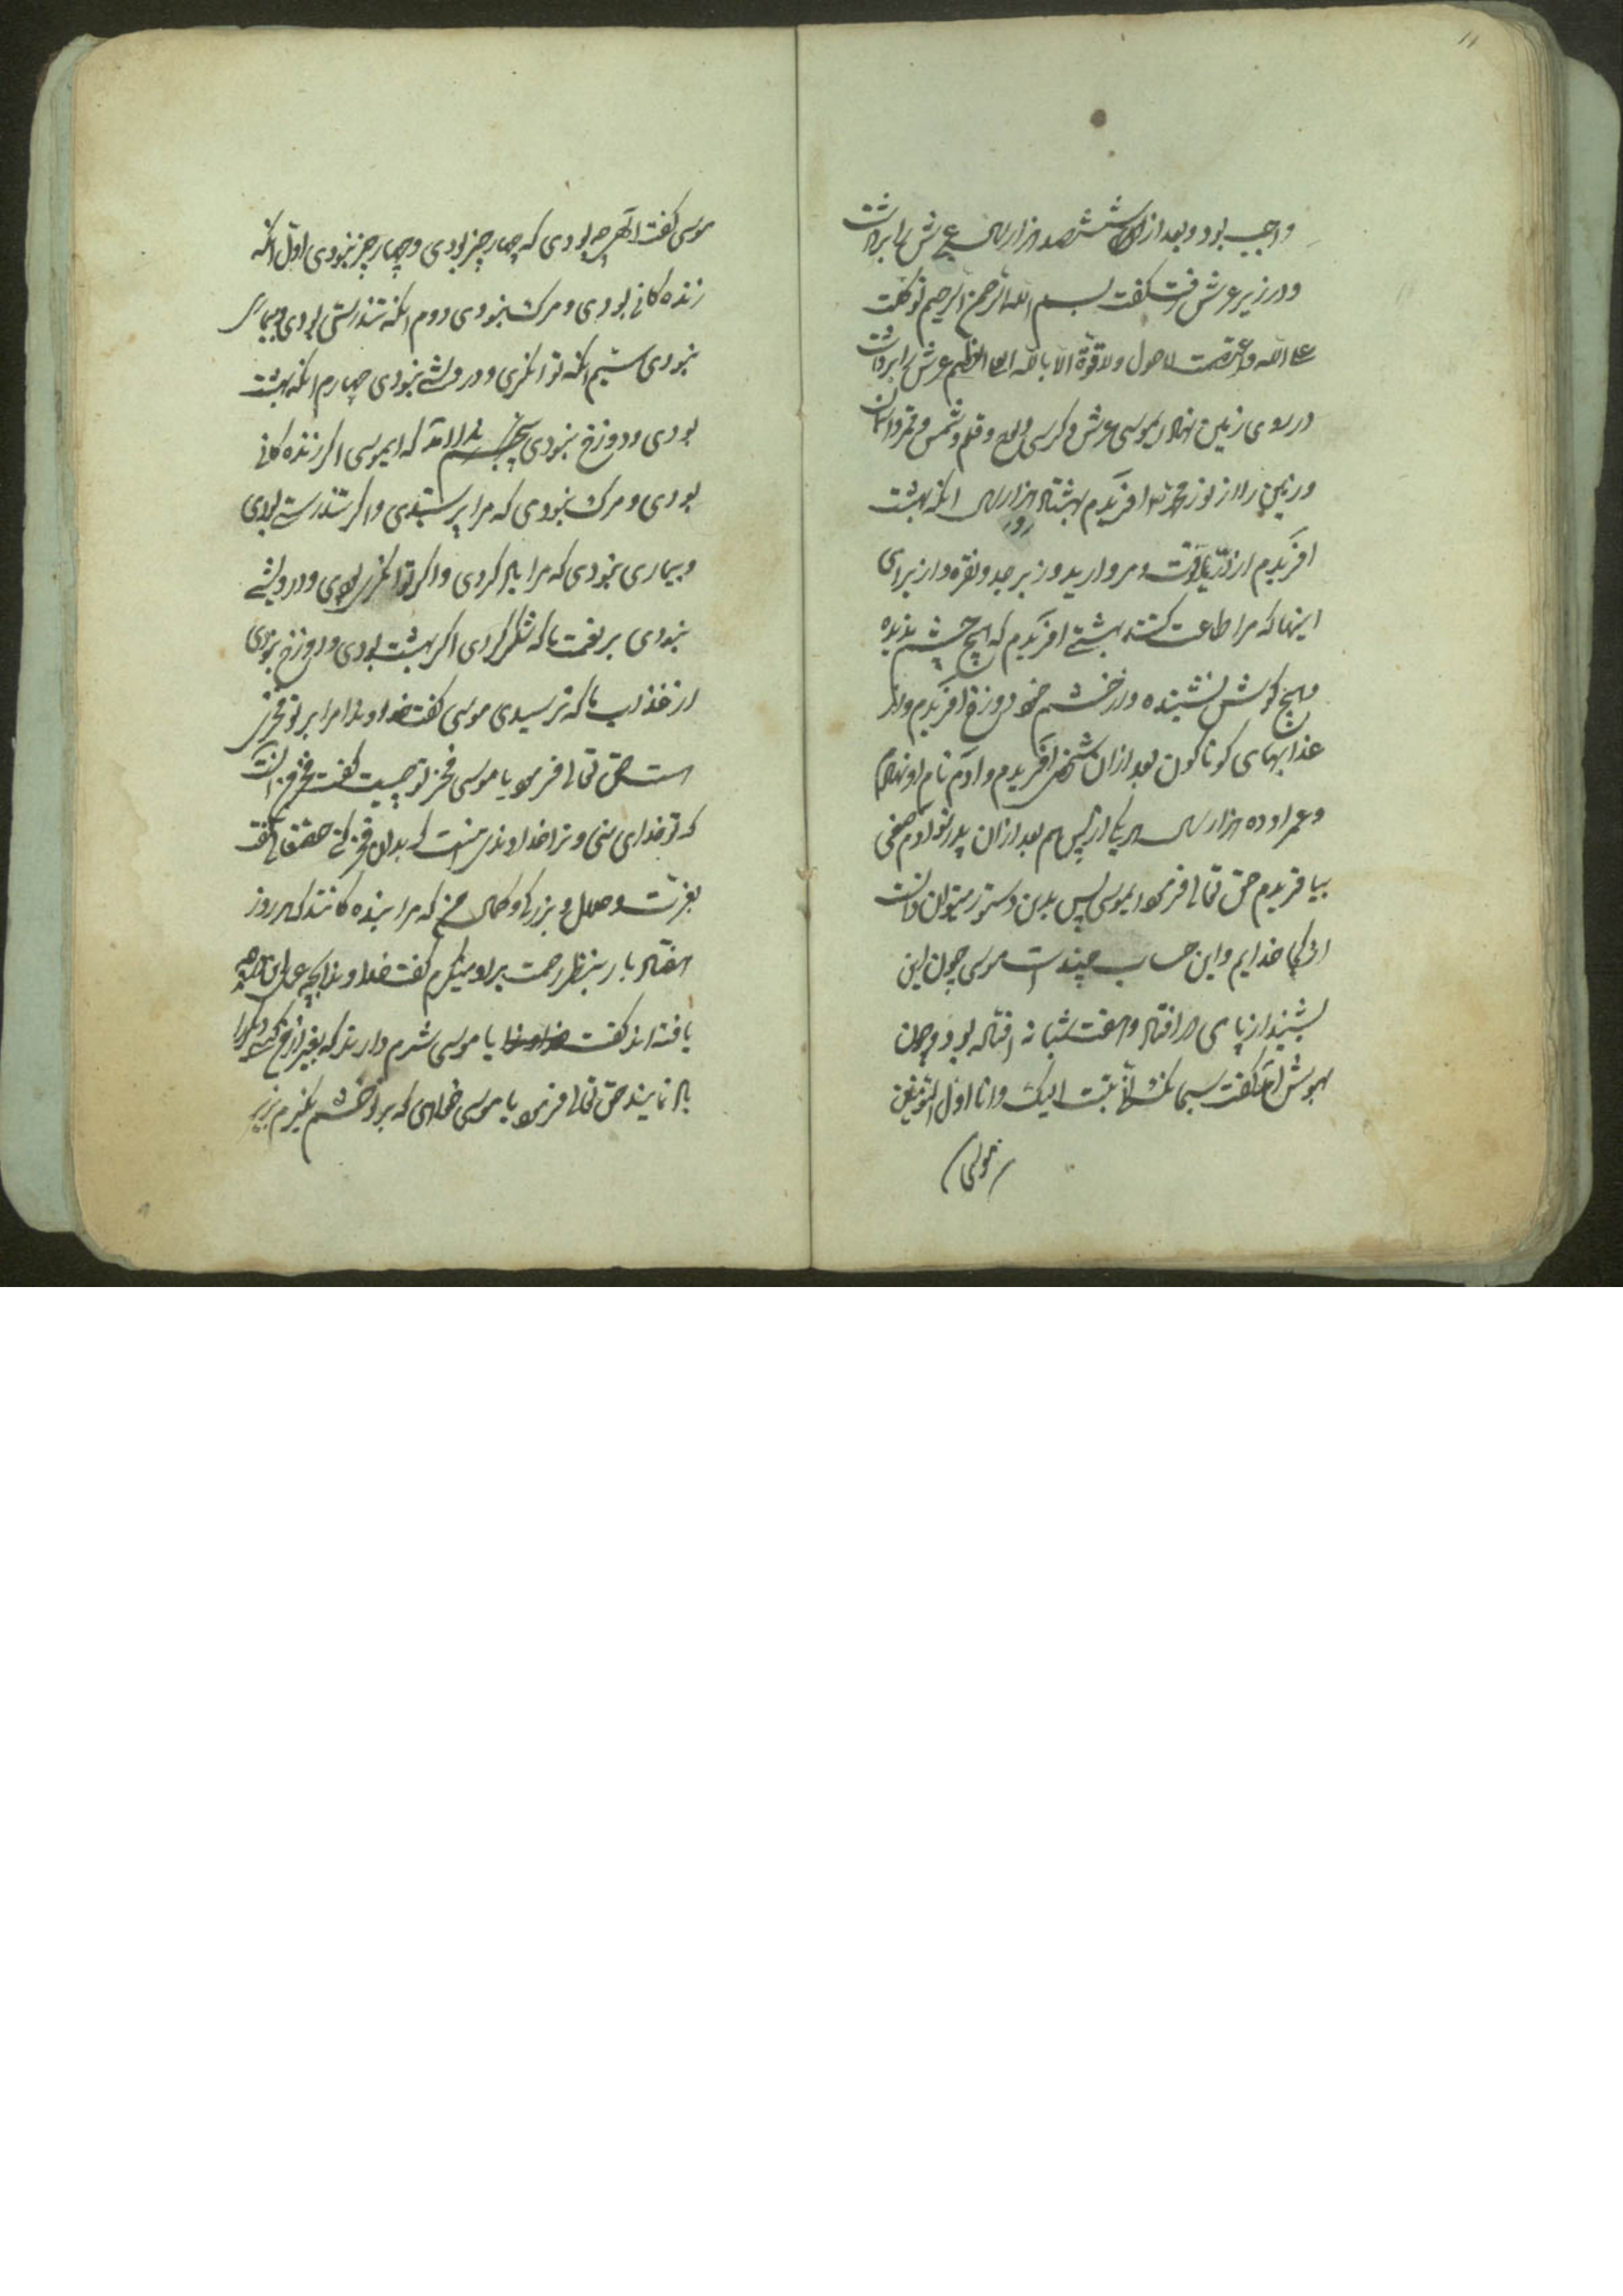 واجب بود و بعد از ان ششصد هزار سال عرش را برداشت
و در زیر عرش رفت گفت بسم الله الرحمن الرحیم توکلت
علی الله واعتصمت لا حول ولا قوة الا بالله العلی العظیم عرش را برداشت
در روی زمین نهاد ایموسی عرش و کرسی و لوح و قلم و شمس و قمر و آسمان
و زمین را از نور محمد افریدم هشتاد هزار سال انکه بهشت
افریدم از در و یاقوت و مروارید و زبرجد و نقره و از برای
اینها که مرا طاعت کنند بهشتی افریدم که هیچ چشم ندیده
و هیچ کوش نشنیده و از خشم خود دوزخ افریدم و از
عذابهای کوناکون بعد از ان شخصی افریدم و ادم نام او نهادم
و عمر او ده هزار سال هر یک از پس هم بعد از ان پدر تو ادم صفی
بیافریدم حق تعالی فرمود ایموسی پس بدین دستور میتوان دانست
از کی خدایم و این حساب چند است موسی چون این
بشنید از پای در افتاد و هفت شبانه افتاده بود و چون
بهوش آمد گفت سبحانک انی تبت الیک وانا اول المؤمنین
موسی
موسی گفت الهی چه بودی که چهار چیز بودی و چهار چیز نبودی اول انکه
زنده کانی بودی و مرک نبودی دوم انکه تندرستی بودی و بیماری
نبودی سیم انکه توانکری و درویشی نبودی چهارم انکه بهشت
بودی و دوزخ نبودی ندا امد که ایموسی اکر زنده کانی
بودی و مرک نبودی که مرا پرستیدی و اکر تندرستی بودی
و بیماری نبودی که مرا یاد کردی و اکر توانکری بودی و درویشی
نبودی بر نعمت ما که شکر کردی اکر بهشت بودی و دوزخ نبودی
از عذاب ما که ترسیدی موسی گفت خداوندا مرا بر تو فخری
است حق تعالی فرمود یا موسی فخر تو چیست گفت فخر من انست
که تو خدای منی و ترا خداوندی نیست که بدان فخر کنی حقتعالی گفت
بعزت و جلال و بزرکی و کمال من که مرا بنده کانند که هر روز
هفتاد بار بنظر رحمت بر او مینکرم گفت خداوندا بچه عمل این مرتبه
یافته اند گفت یا موسی شرم دارند که بغیر از من کسی دیکر را
یاد نمایند حق تعالی فرمود یا موسی خواهی که بر تو خشم نکیرم بزیر